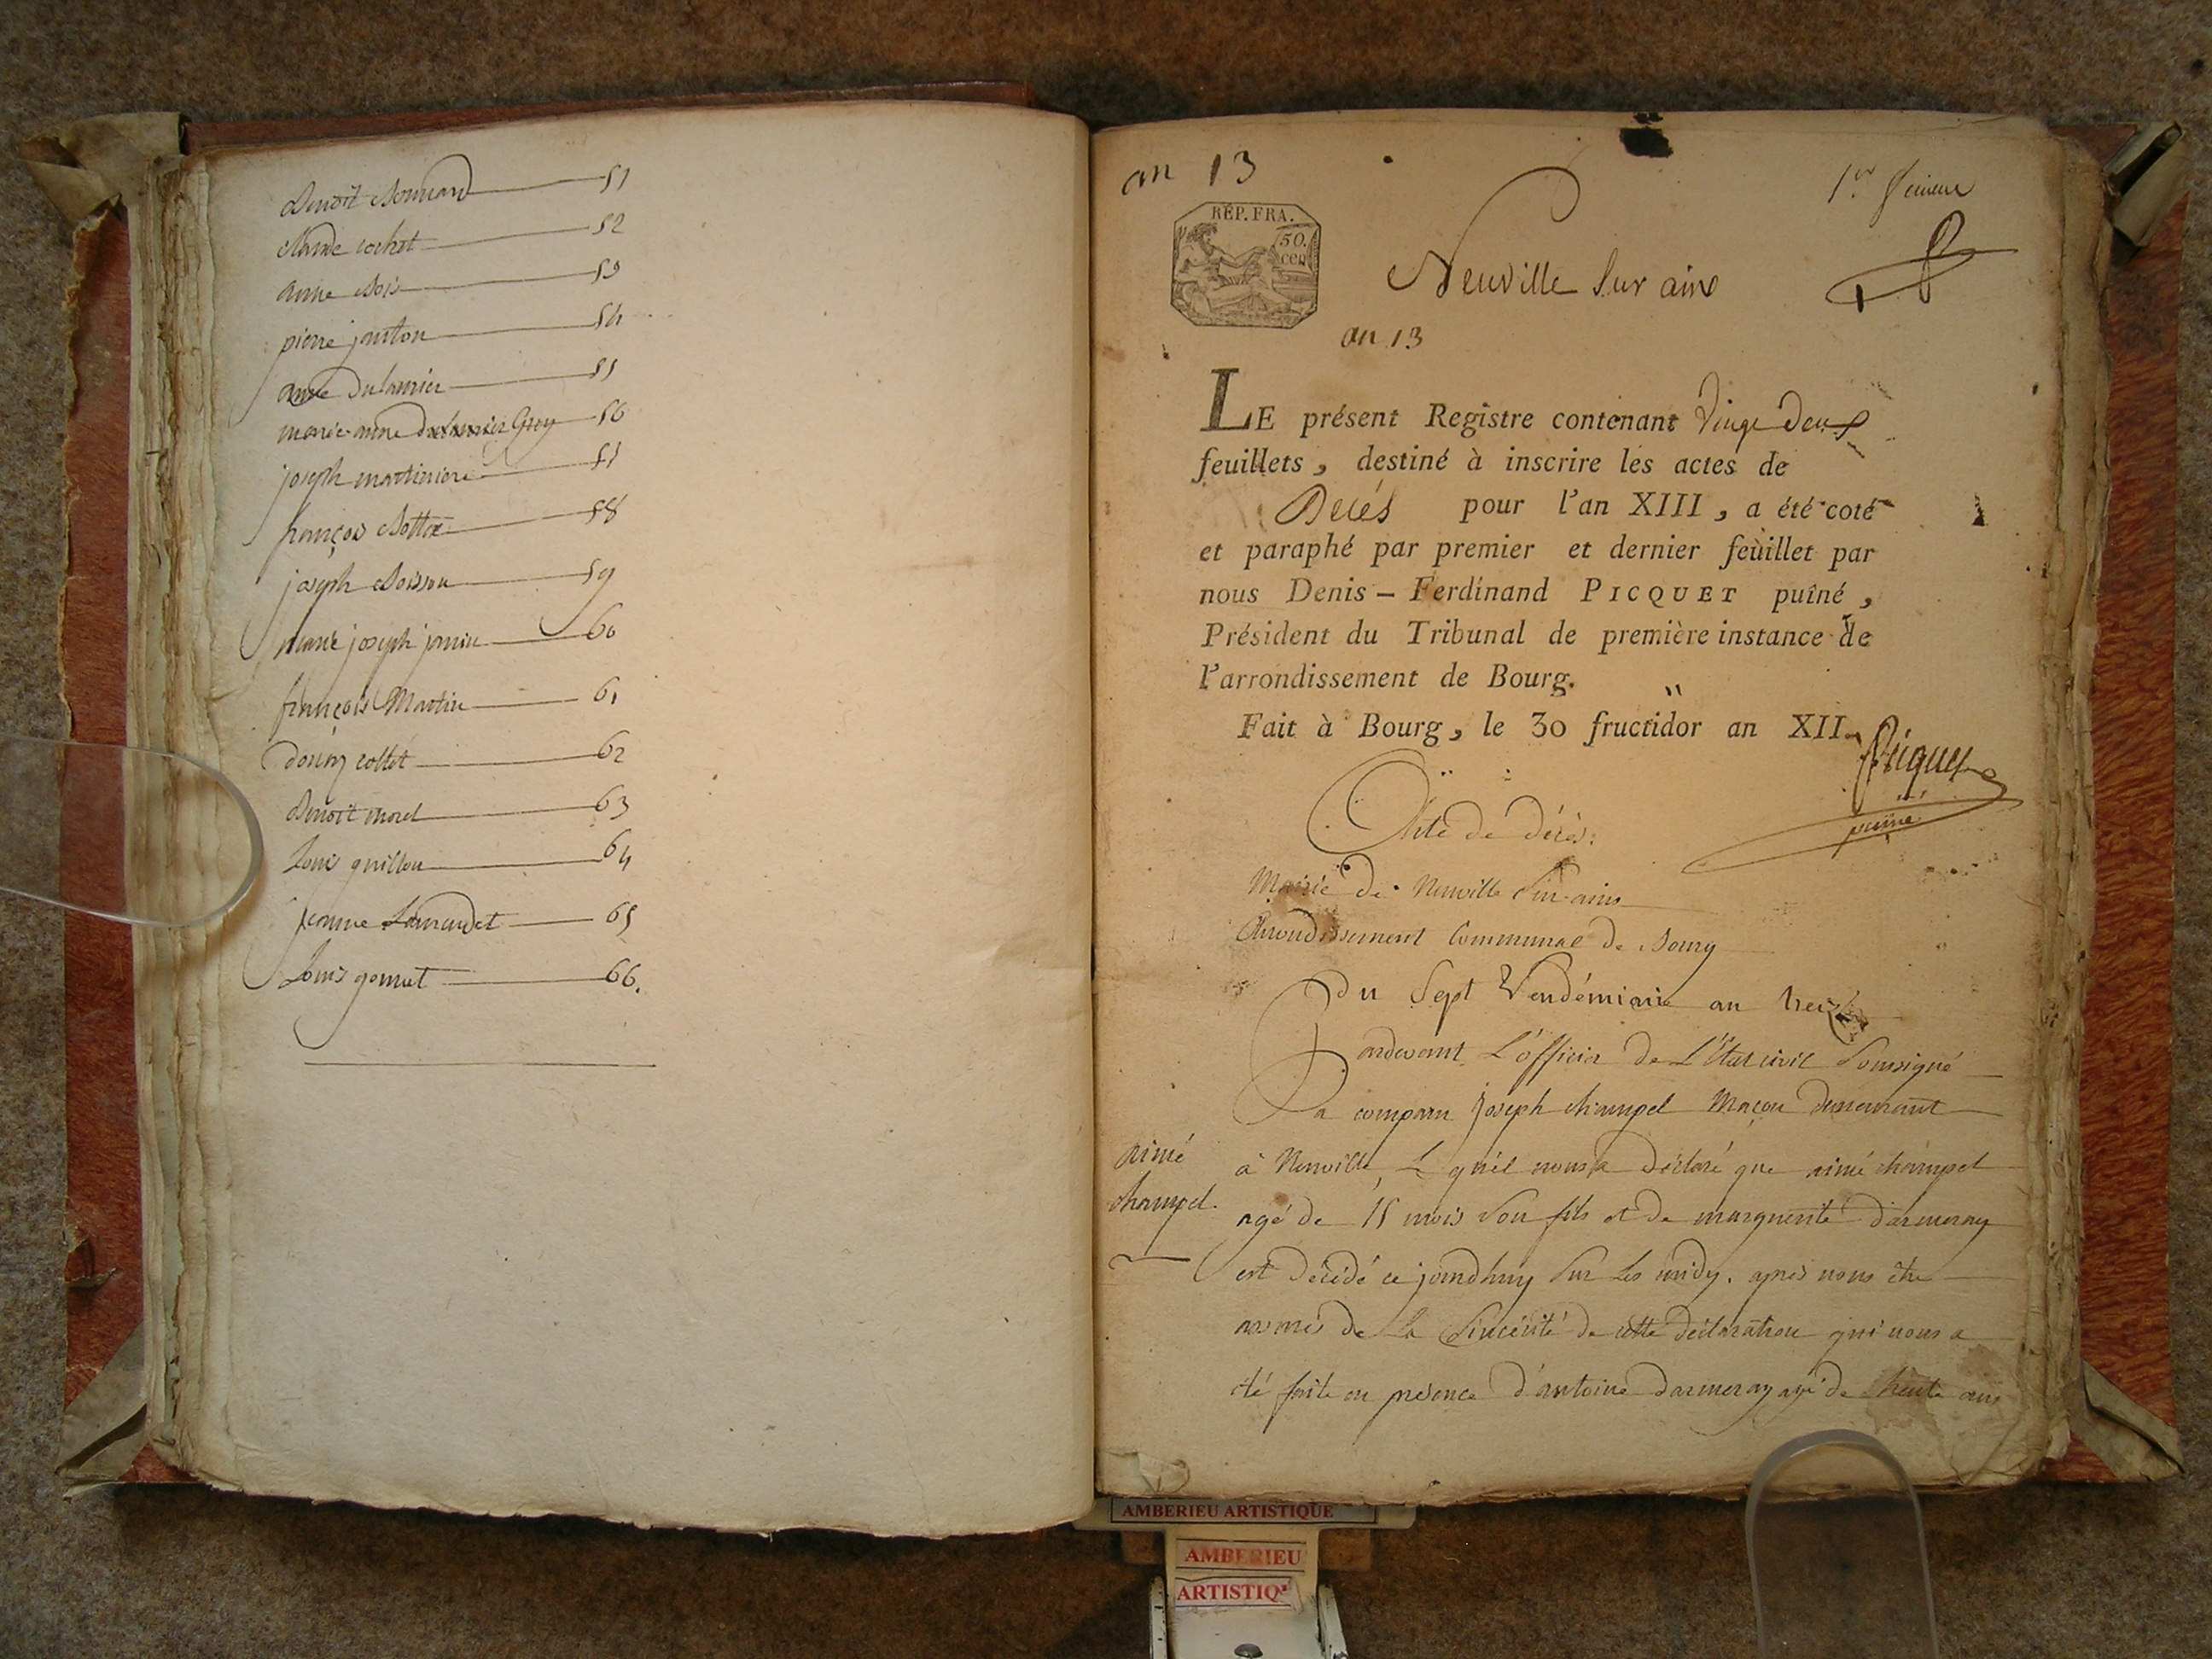 Benoit Bonnard 51
claude cochet 52
anne Bois 53
pierre janton 54
anne Dulaurier 55
marie anne 56
joseph martiniere 57
françois Bottex 58
joseph Boisson 59
marie joseph janin 60
françois Martin 61
collet 62
Benoit morel 63
Louis guillon 64
jeanne 65
Louis gonnet 66.
an 13
1er feuille
RÉP. FRA.
50.
cen
Neuville sur ain
an 13
LE présent Registre contenant Vingt Deux
feuillets, destiné à inscrire les actes de
Décés pour l'an XIII, a été coté
et paraphé par premier et dernier feuillet par
nous Denis – Ferdinand PICQUET puîné,
Président du Tribunal de première instance de
l'arrondissement de Bourg.
Fait à Bourg, le 30 fructidor an XII.
Picquet
puîné
Acte de décès:
Mairie de Neuville sur ain
Arrondissement Communal de Bourg
Du Sept Vendémiaire an treize
Pardevant L'officier de L'État civil soussigné
a comparu joseph champel Maçon demeurant
à Neuville, Le quel nous a déclaré que aimé champel
agé de 15 mois son fils et de marguerite darmeray
est décédé ce jourdhuy sur les midy. après nous être
assurés de La sincérité de cette déclaration qui nous a
été faite en presence d'antoine darmeray agé de trente ans
aimé
champel.
AMBERIEU ARTISTIQUE
AMBERIEU
ARTISTIQ